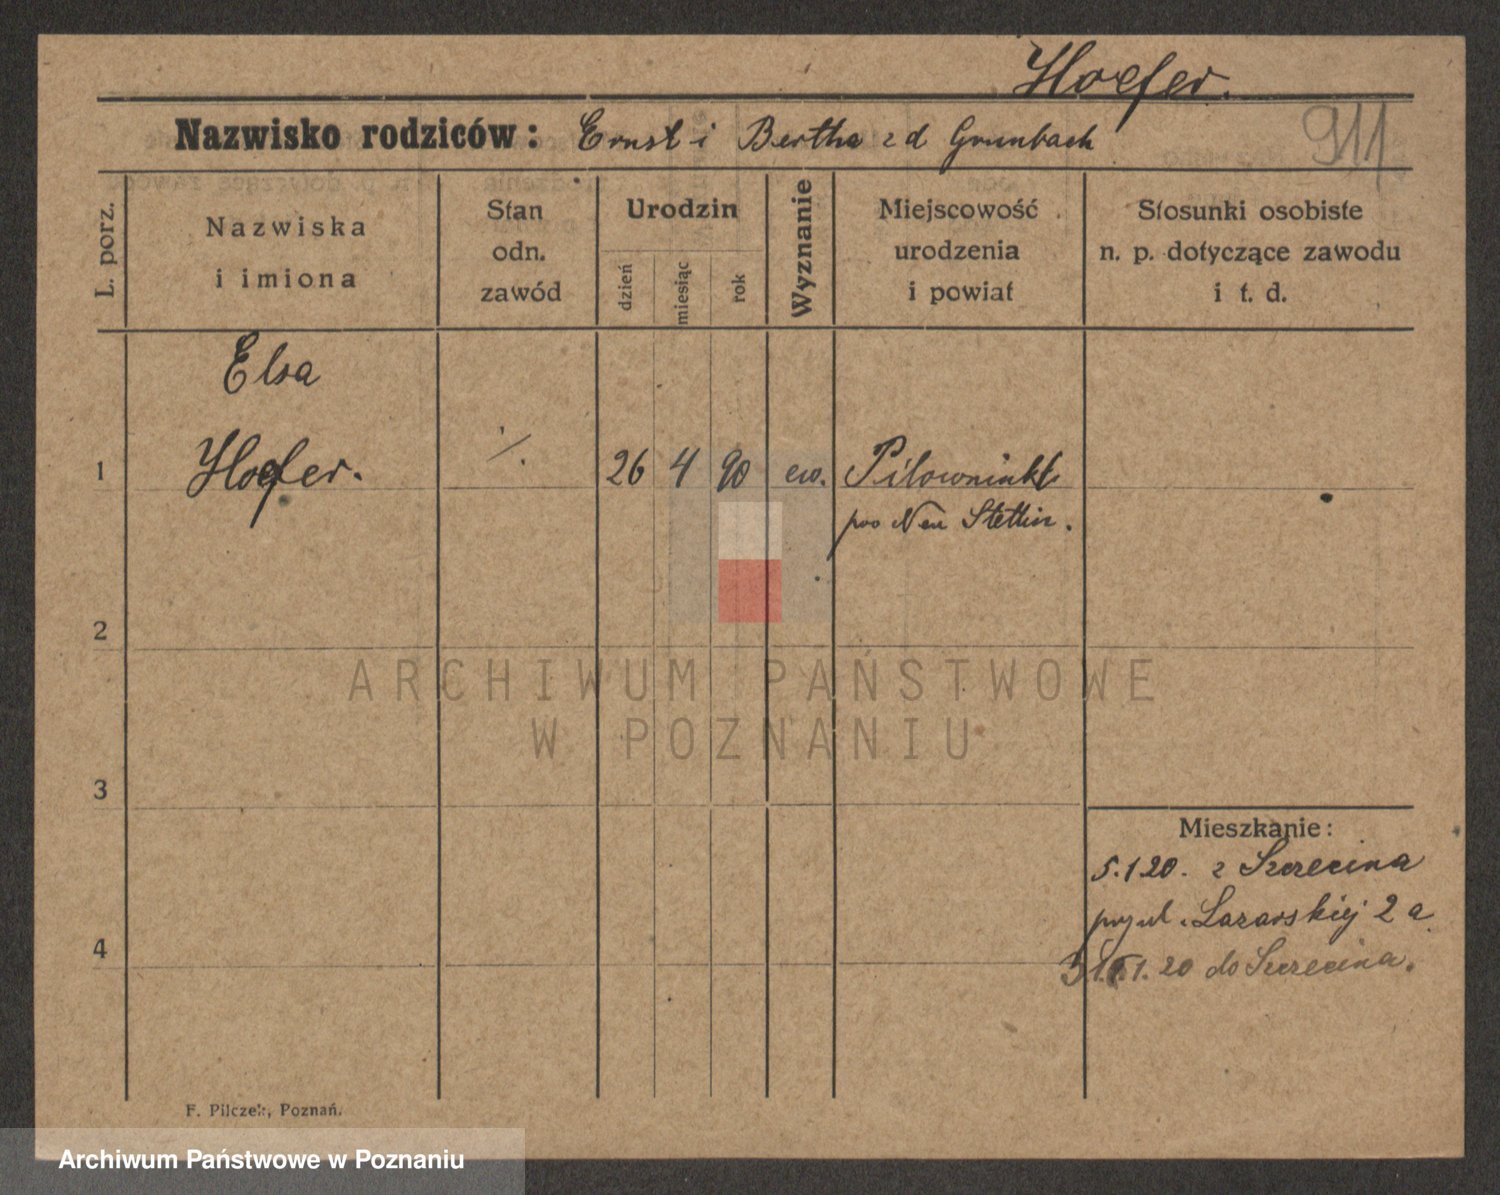 Hoefer.
Nazwisko rodziców: Ernst i Bertha z d Grunbach
911
L. porz.
Nazwiska
i imiona
Stan
odn.
zawód
Urodzin
dzień
miesiąc
rok
Wyznanie
Miejscowość
urodzenia
i powiat
Stosunki osobiste
n. p. dotyczące zawodu
i t. d.
Elsa
1 Hoefer. ./. 26 4 90 ew.
pow Neu Stettin.
2
3
4
Mieszkanie:
5.1.20. z Szczecina
przy ul. Lazarskiej 2 a
31.1.20 do Szczecina.
F. Pilczek, Poznań.
ARCHIWUM PAŃSTWOWE
W POZNANIU
Archiwum Państwowe w Poznaniu